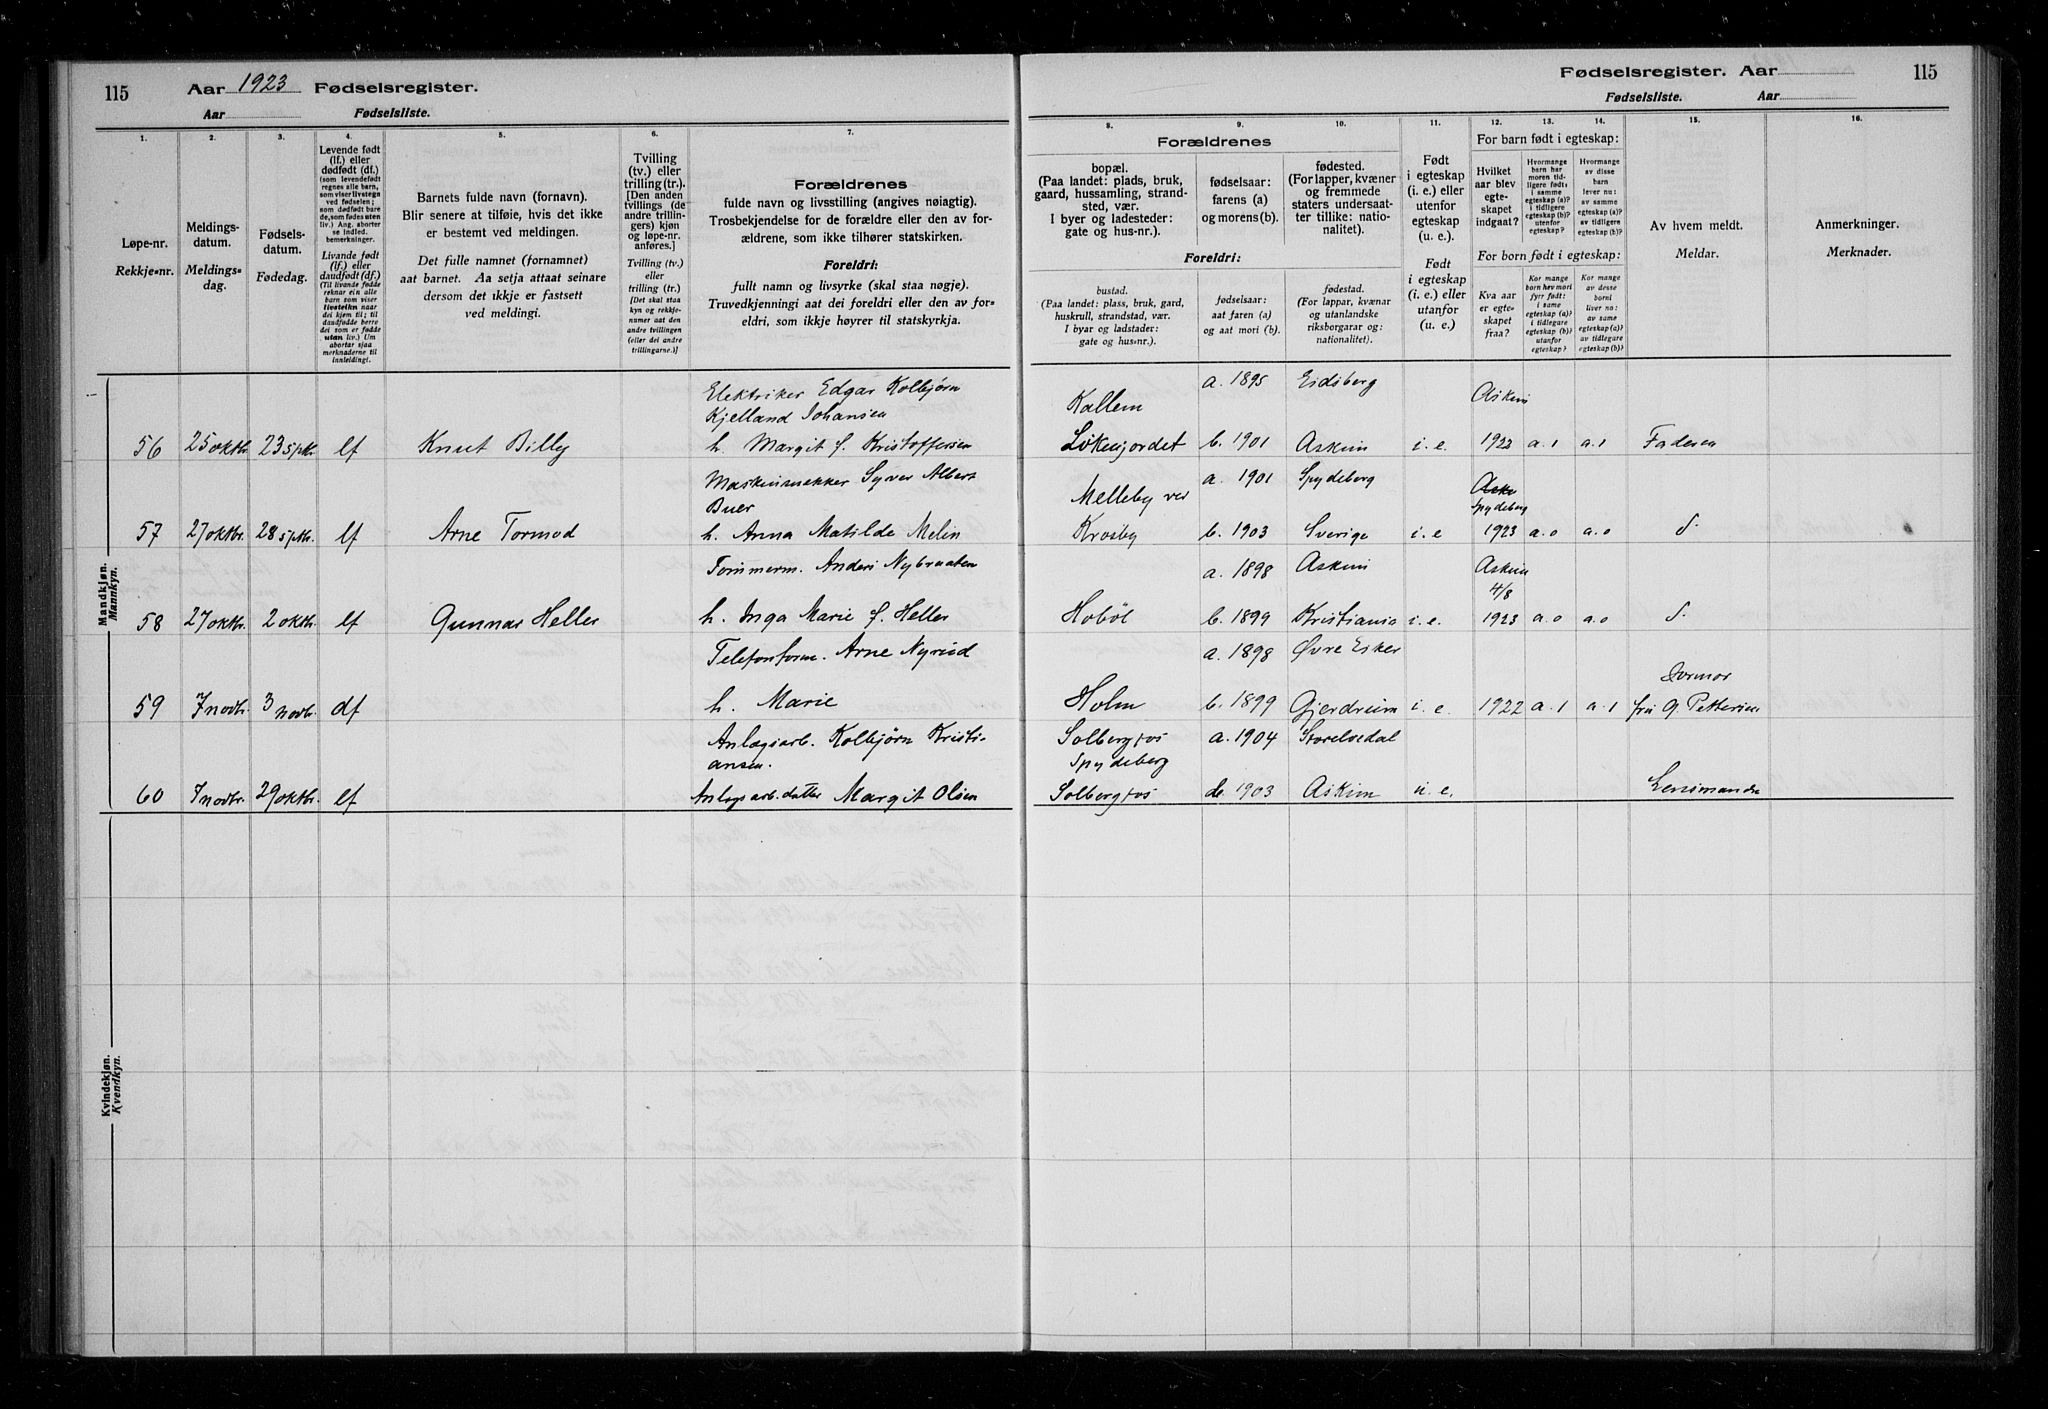 115 Aar 1923 Fødselsregister.
Aar Fødselsliste.
Fødselsregister. Aar 115
Fødselsliste. Aar
1. 2. 3. 4. 5. 6. 7.
8. 9. 10. 11. 12. 13. 14. 15. 16.
Løpe-nr.
Rekkje-nr.
Meldings-
datum.
Meldings-
dag.
Fødsels-
datum.
Fødedag.
Levende født
(lf.) eller
dødfødt (df.)
(som levendefødt
regnes alle barn,
som viser livstegn
ved fødselen;
som dødfødt bare
de, som fødes uten
liv.) Ang. aborter
se indled.
bemerkninger.
Livande født
(lf.) eller
daudfødt (df.)
(Til livande fødde
reknar ein alle
barn som viser
livsteikn naar
dei kjem til; til
daudfødde berre
dei som er fødde
utan liv.) Um
abortar sjaa
merknaderne til
innleiding!
Barnets fulde navn (fornavn).
Blir senere at tilføie, hvis det ikke
er bestemt ved meldingen.
Det fulle namnet (fornamnet)
aat barnet. Aa setja attaat seinare
dersom det ikkje er fastsett
ved meldingi.
Tvilling
(tv.) eller
trilling (tr.).
[Den anden
tvillings (de
andre trillin-
gers) kjøn
og løpe-nr.
anføres.]
Tvilling (tv.)
eller
trilling (tr.)
[Det skal staa
kyn og rekkje-
numer aat den
andre tvillingen
(eller dei andre
trillingarne.)]
Forældrenes
fulde navn og livsstilling (angives nøiagtig).
Trosbekjendelse for de forældre eller den av for-
ældrene, som ikke tilhører statskirken.
Foreldri:
fullt namn og livsyrke (skal staa nøgje).
Truvedkjenningi aat dei foreldri eller den av for-
eldri, som ikkje høyrer til statskyrkja.
Forældrenes
bopæl.
(Paa landet: plads, bruk,
gaard, hussamling, strand-
sted, vær.
I byer og ladesteder:
gate og hus-nr.).
fødselsaar:
farens (a)
og morens (b).
fødested.
(For lapper, kvæner
og fremmede
staters undersaat-
ter tillike: natio-
nalitet).
Foreldri:
bustad.
(Paa landet: plass, bruk, gard,
huskrull, strandstad, vær.
I byar og ladstader:
gate og hus-nr.).
fødselsaar:
aat faren (a)
og aat mori (b).
fødestad.
(For lappar, kvænar
og utanlandske
riksborgarar og:
nationalitet).
Født
i egteskap
(i. e.) eller
utenfor
egteskap
(u. e.).
Født
i egteskap
(i. e.) eller
utanfor
(u. e.).
For barn født i egteskap:
Hvilket
aar blev
egte-
skapet
indgaat?
Hvormange
barn har
moren tid-
ligere født:
i samme
egteskap (a)?
i tidligere
egteskap (b)?
utenfor
egteskap?
Hvormange
av disse
barn
lever nu:
av samme
egteskap (a)?
av tidligere
egteskap (b)?
For barn født i egteskap:
Kva aar
er egte-
skapet
fraa?
Kor mange
barn hev mori
fyrr født:
i same
egteskap (a)?
i tidlegare
egteskap (b)?
utanfor
egteskap?
Kor mange
av desse
borni
liver no:
av same
egteskap (a)?
av tidlegare
egteskap (b)?
Av hvem meldt.
Meldar.
Anmerkninger.
Merknader.
Mandkjøn.
Mannkyn.
Elektriker Edgar Kolbjørn a. 1895 Eidsberg Askim
Kjelland Johansen Kallem
56 25 oktbr. 23 sptbr. lf Knut Billy h. Margit f. Kristoffersen Løkenjordet b. 1901 Askim i. e. 1922 a. 1 a. 1 Faderen
Maskinsnekker Syver Albert a. 1901 Spydeberg
Buer Melleby ved Spydeberg
57 27 oktbr. 28 sptbr. lf Arne Tormod h. Anna Matilde Melin Krosby b. 1903 Sverige i. e 1923 a. 0 a. 0
Tømmerm. Anders Nybraaten a. 1898 Askim Askim
4/8
58 27 oktbr. 2 oktbr. lf Gunnar Heller h. Inga Marie f. Heller Hobøl b. 1899 Kristiania i. e. 1923 a. 0 a. 0
Telefonform. Arne Nyrud a. 1898 Øvre Eiker
Jormor
59 7 novbr. 3 novbr. df h. Marie Holm b. 1899 Gjerdrum i. e. 1922 a. 1 a. 1 fru G. Pettersen
Anlægsarb. Kolbjørn Kristi- Solbergfos a. 1904 Storelvedal
ansen. Spydeberg
60 7 novbr. 29 oktbr. lf Anlægsarb. datter Margit Olsen Solbergfos b. 1903 Askim u. e. Lensmanden
Kvindekjøn.
Kvendkyn.